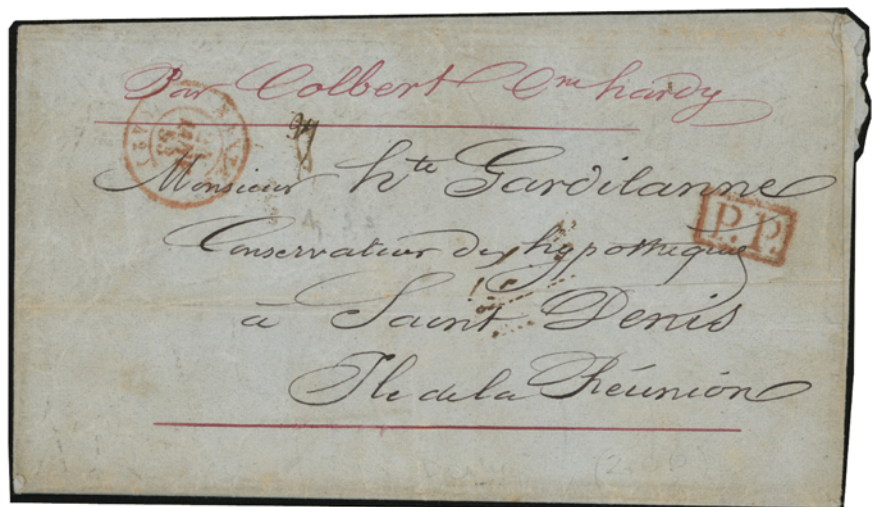 Par Colbert Cne hardy
Monsieur hte Gardilanne
P.P.
Conservateur des hypothèques
à Saint Denis
Ile de la Réunion